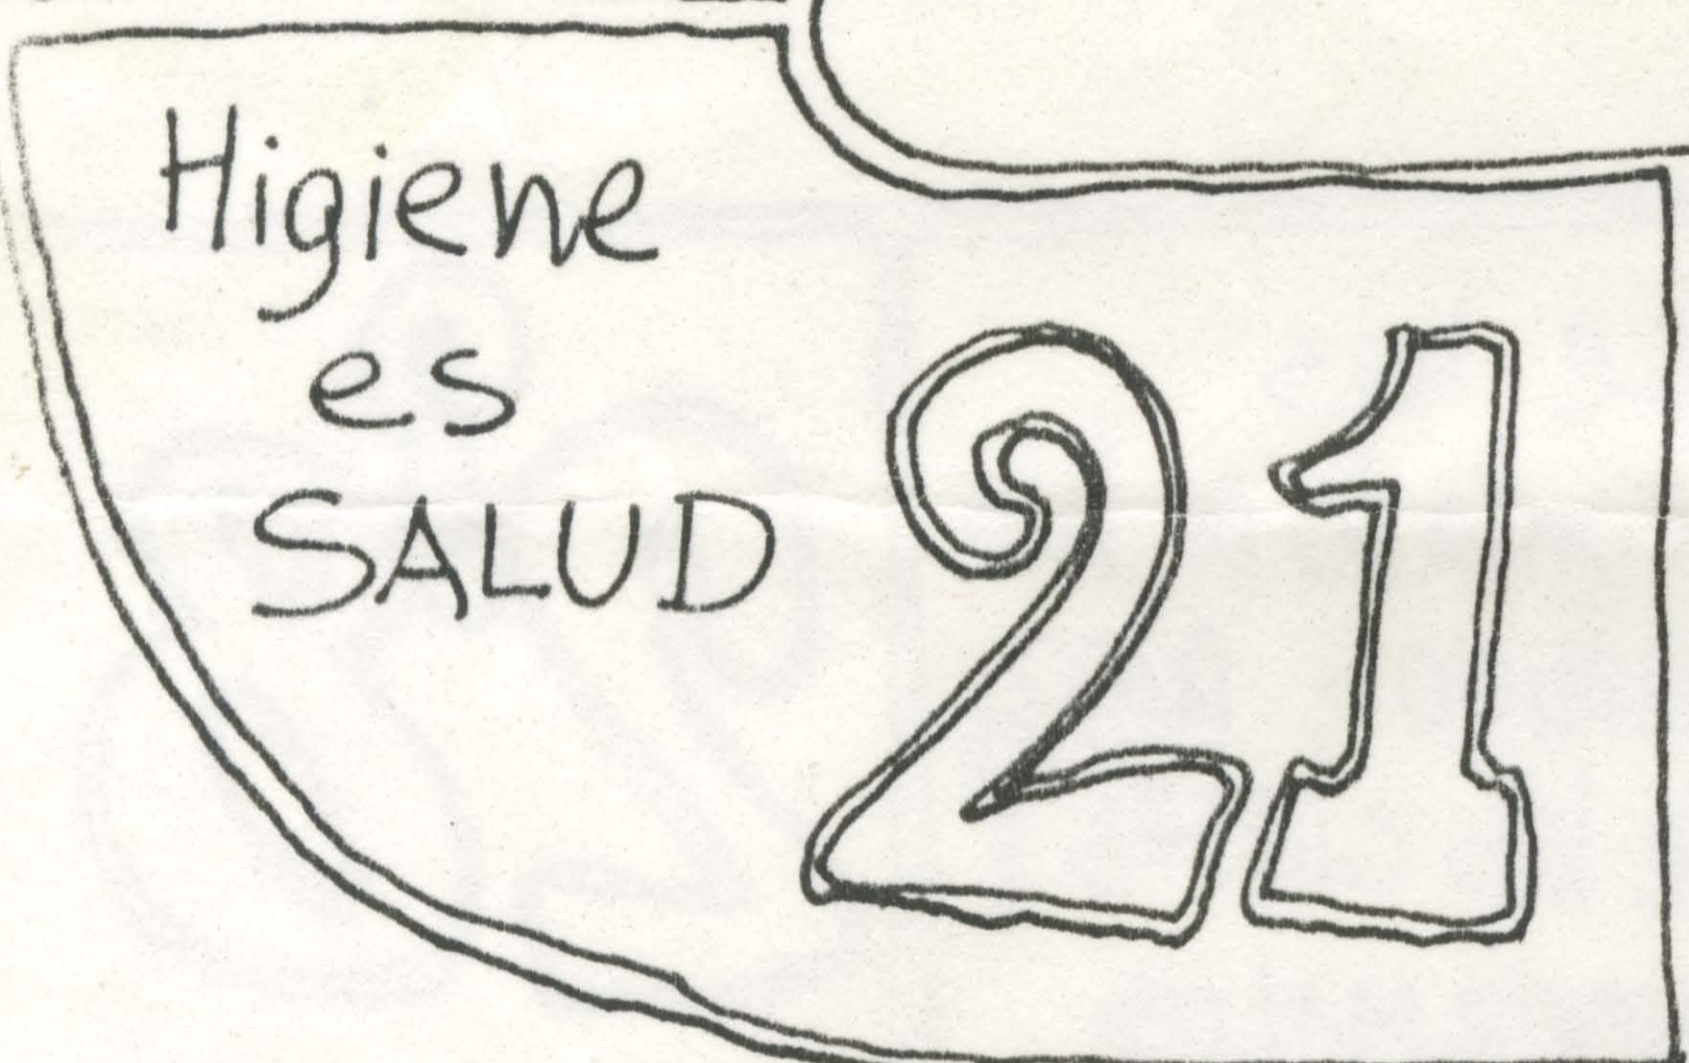 Higiene
es
SALUD
21